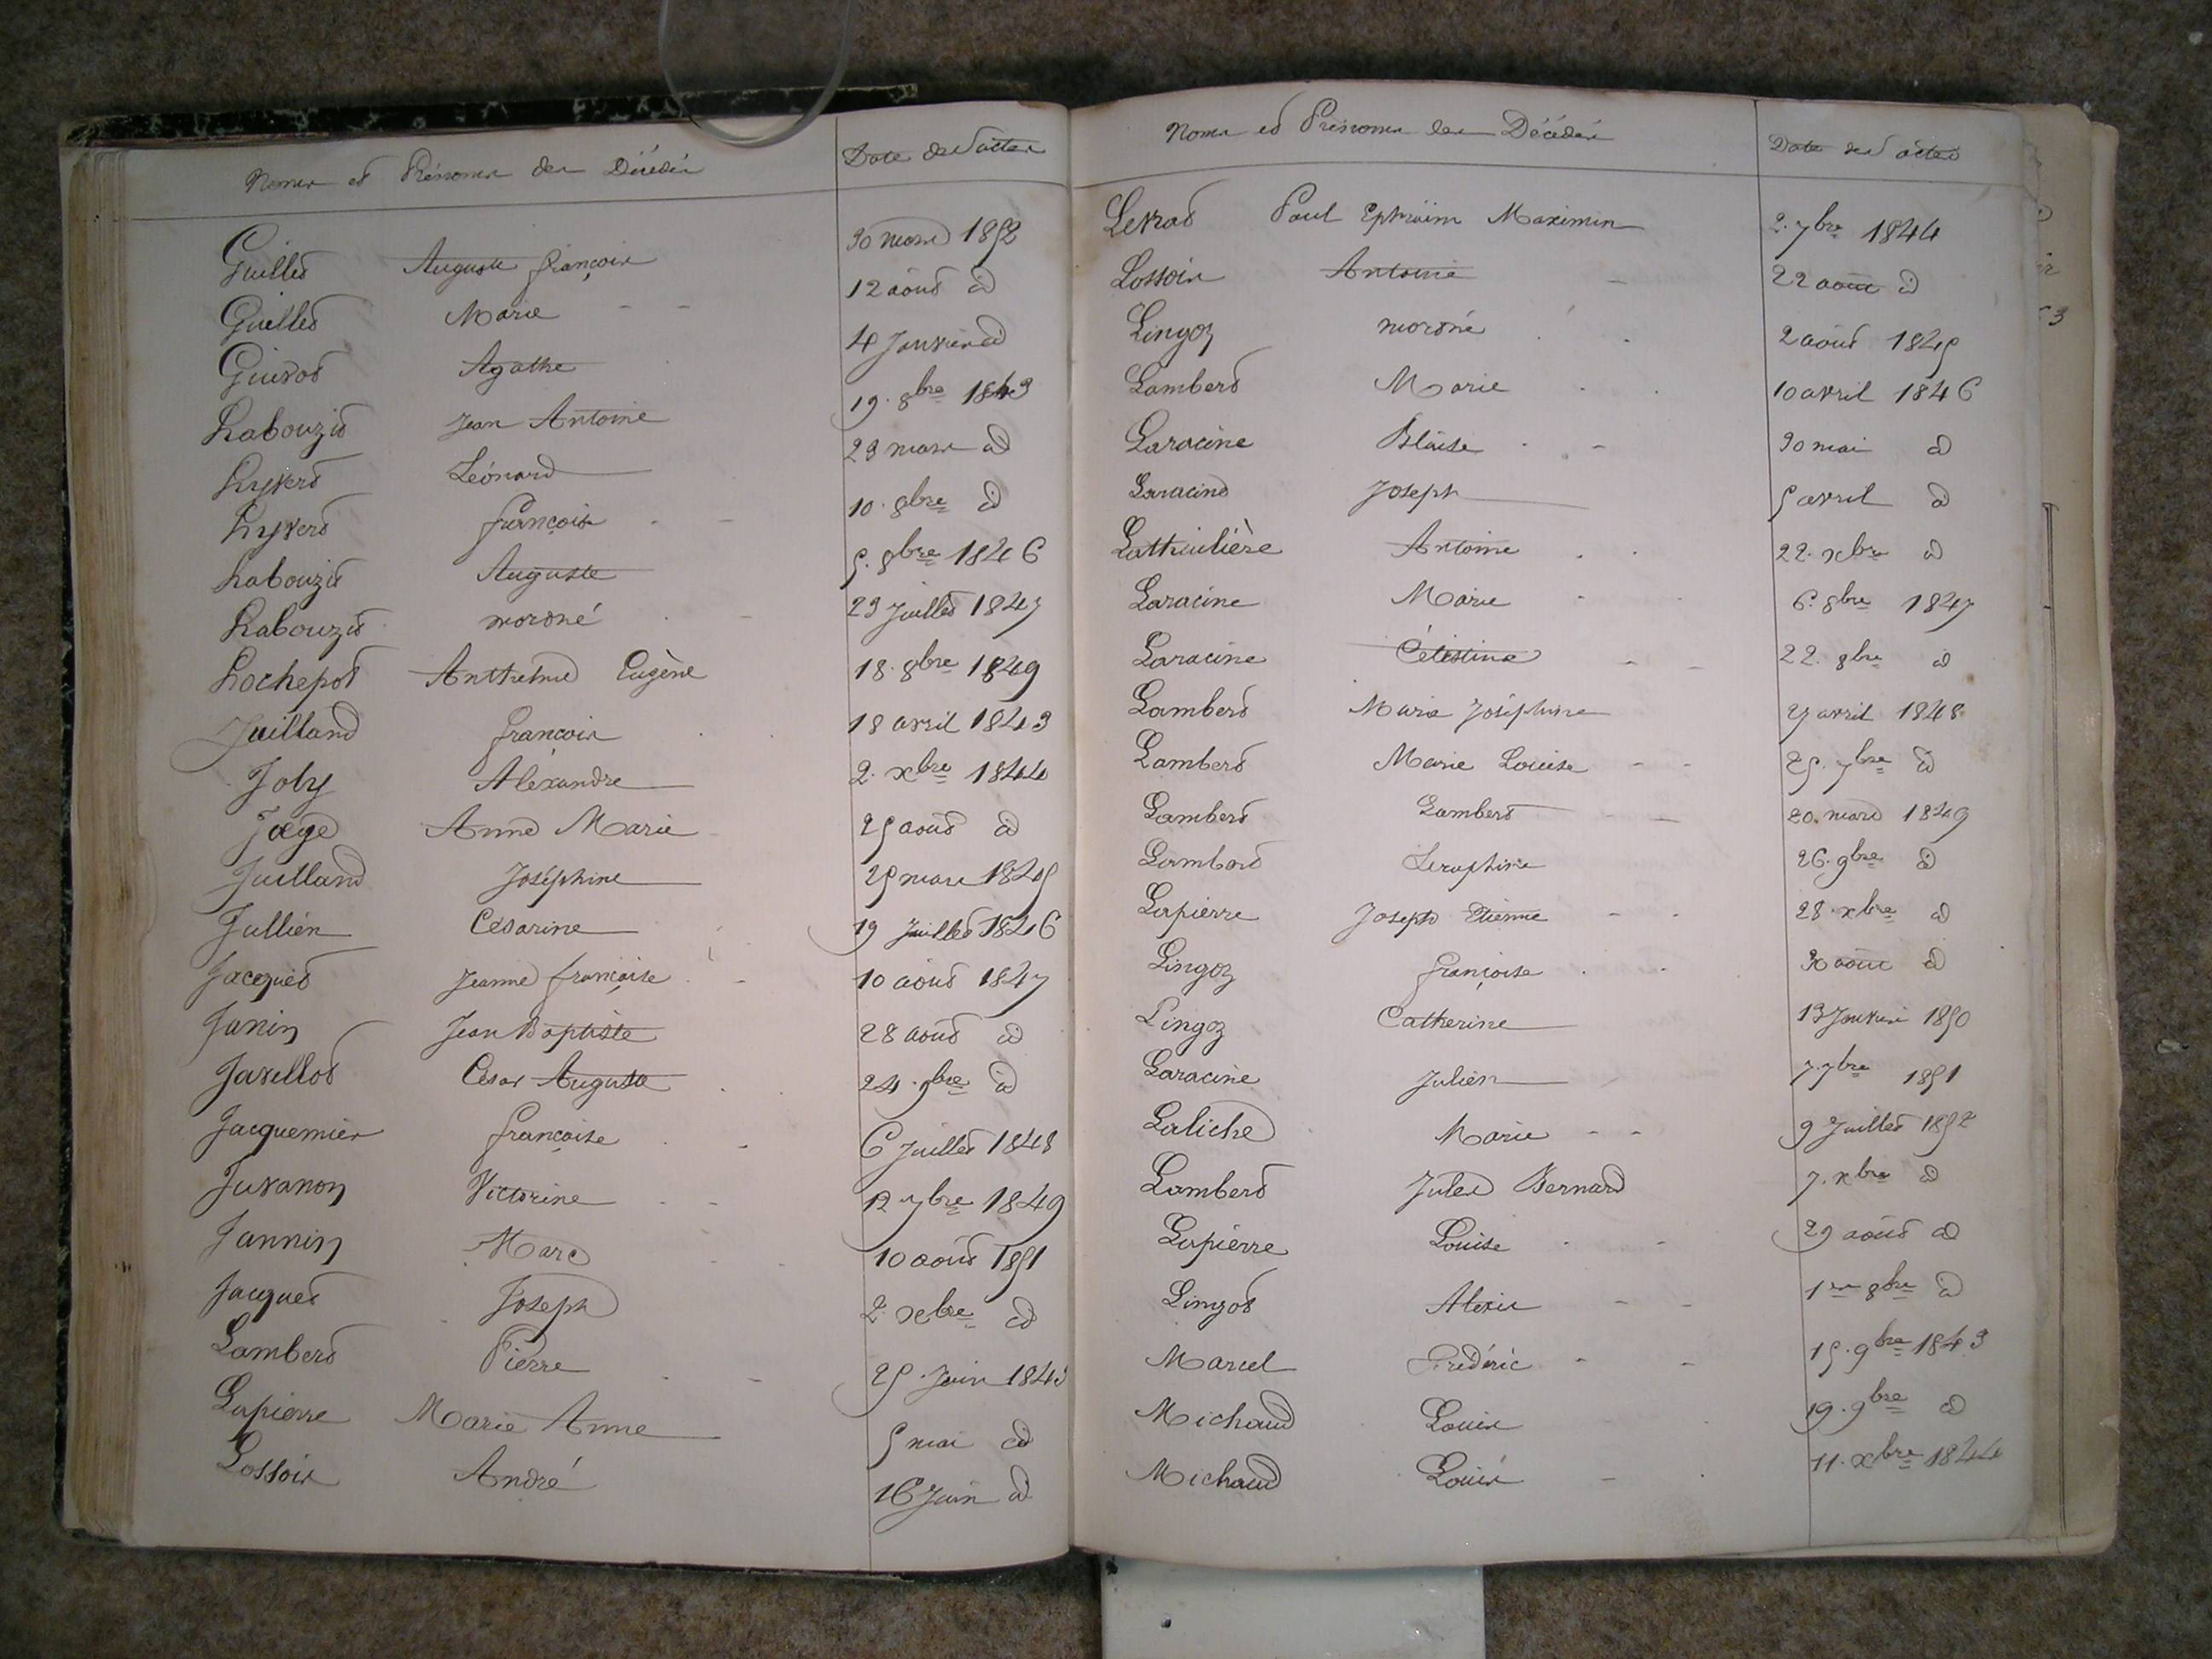 Noms et Prénoms des Décédés Date des actes
Guillet Auguste françois 30 mars 1852
Guillet Marie 12 août id
Guivot Agathe 4 Janvier id
Labouzit Jean Antoine 19. 8bre 1843
Hyvert Léonard 23 mars id
Hyvert françois 10. 8bre id
Labouzit Auguste 5. 8bre 1846
Labouzit mort né 23 Juillet 1847
Hochepot Anthelme Eugène 18. 8bre 1849
Juilland françois 18 avril 1843
Joly Aléxandre 2. xbre 1844
Jage Anne Marie 25 août id
Juilland Joséphine 25 mars 1845
Jullien Césarine 19 Juillet 1846
Jacques Jeanne françoise 10 août 1847
Janin Jean Baptiste 28 août id
Javellot César Auguste 24. 9bre id
Jacquemier françoise 6 Juillet 1848
Juvanon Victorine 12 7bre 1849
Jannin Marc 10 août 1851
Jacques Joseph 2. xbre id
Lambert Pierre 25 Juin 1843
Lapierre Marie Anne 5 mai id
Lossoix André 16 Juin id
Noms et Prénoms des Décédés Date des actes
Levrat Paul Ephraïm Maximin 2. 7bre 1844
Lossoix Antoine 22 août id
Lingoz mort né 2 août 1845
Lambert Marie 10 avril 1846
Laracine Blaise 30 mai id
Laracine Joseph 5 avril id
Lathuilière Antoine 22. xbre id
Laracine Marie 6. 8bre 1847
Laracine Célestine 22. 8bre id
Lambert Marie Joséphine 27 avril 1848
Lambert Marie Louise 25. 7bre id
Lambert Lambert 20. mars 1849
Lambert Seraphine 26. 9bre id
Lapierre Joseph Etienne 28. xbre id
Lingoz françoise 30 août id
Lingoz Catherine 13 Janvier 1850
Laracine Julien 7. 7bre 1851
Laliche Marie 9 Juillet 1852
Lambert Jules Bernard 7. xbre id
Lapierre Louise 29 août id
Lingot Alexis 1er 8bre id
Marcel Frédéric 15. 9bre 1843
Michaud Louis 19. 9bre id
Michaud Louis 11. xbre 1844